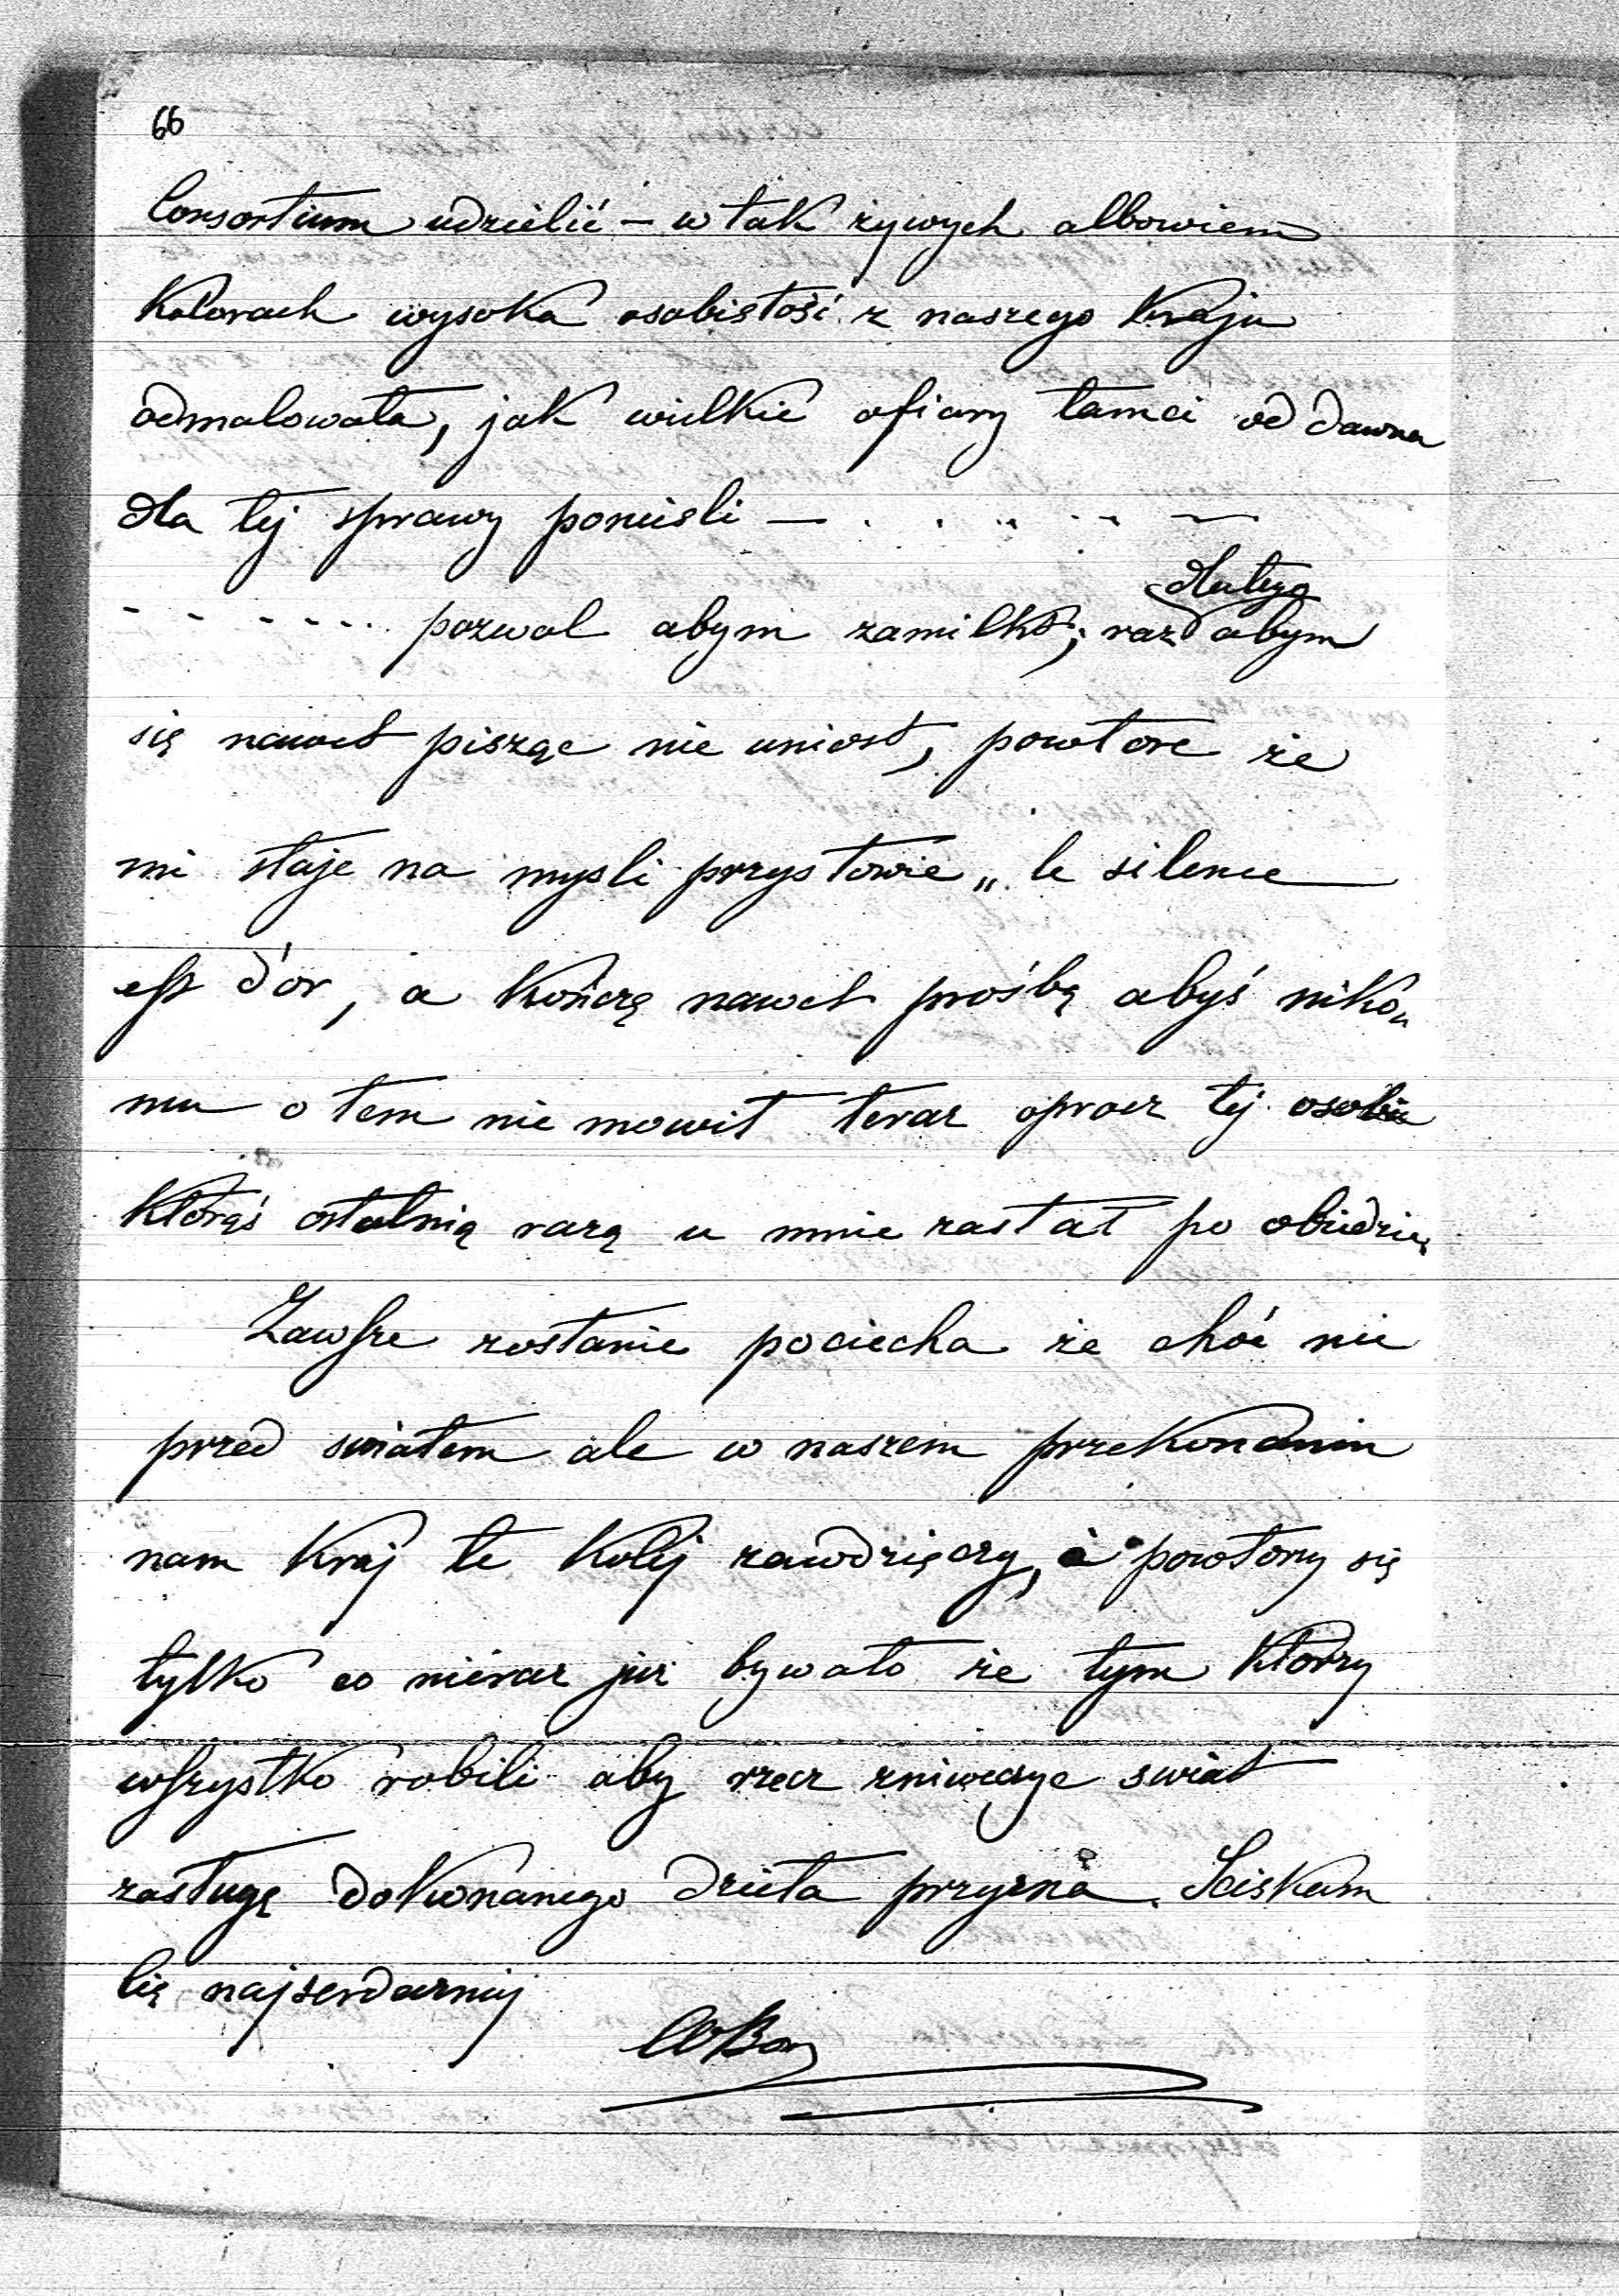 66
Consortium udzielić – w tak żywych albowiem
Kolorach wysoka osobistość z naszego Kraju
odmalowała, jak wielkie ofiary tamci od dawna
dla tej sprawy ponieśli — . . . . . . —
- - - - - . . . pozwol abym zamilkł; raz dlatego abym
się nawet pisząc nie uniosł, powtore że
mi staje na mysli przysłowie „le silence
est d'or, a Kończę nawet prośbą abyś niko„
mu o tem nie mowił teraz oprocz tej osobie
Ktorąś ostatnią razą u mnie zastał po obiedzie,
Zawsze zostanie pociecha że choć nie
przed swiatem ale w naszem przekonaniu
nam Kraj te Kolej zawdzięczy, a powtorzy się
tylko co nieraz już bywało że tym Ktorzy
wszystko robili aby rzecz zniweczyc swiat
zasługę doKonanego dzieła przyzna. Sciskam
Cię najserdeczniej